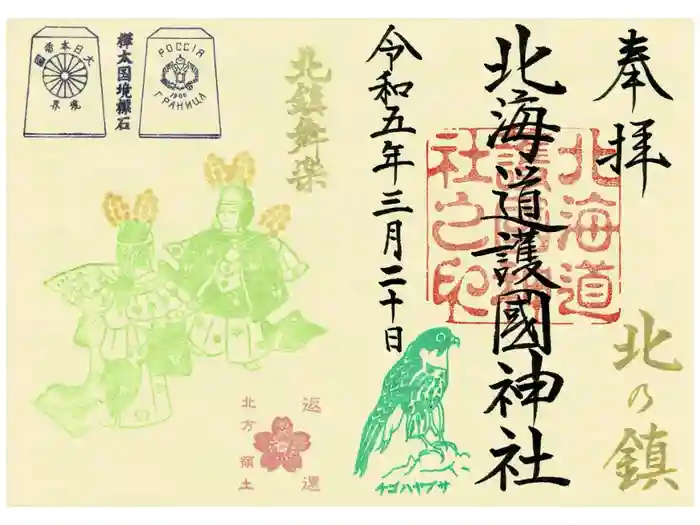 奉拝
北海道護國神社
北海道
護國神
社之印
令和五年三月二十日
北の鎮
北鎮舞楽
樺太国境標石
大日本帝國
境界
РОССІЯ
1906
ГРАНИЦА
チゴハヤブサ
返還
北方領土